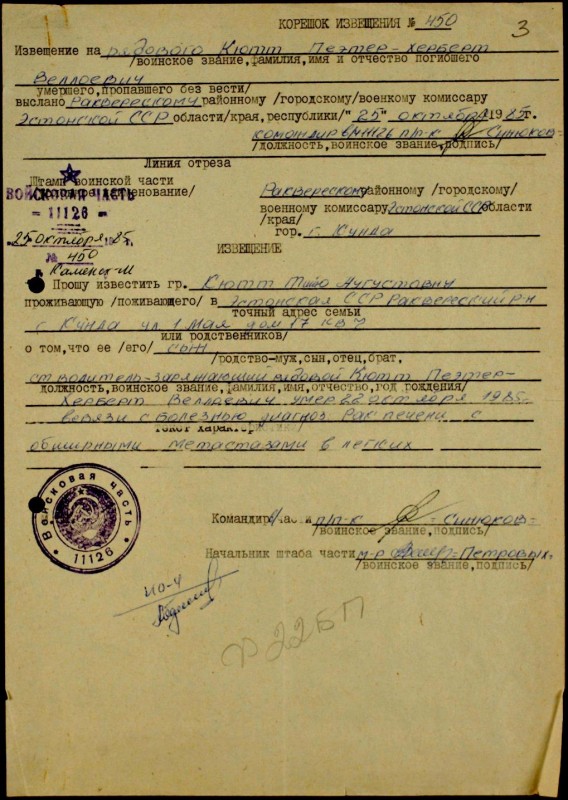 3
КОРЕШОК ИЗВЕЩЕНИЯ № 450
Извещение на рядового Кютт Пеэтер-Херберт
/воинское звание,фамилия,имя и отчество погибшего
Веллоевич
умершего,пропавшего без вести/
выслано Раквересскому районному /городскому/военкому комиссару
Эстонской ССР области/края,республики/"25" октября 1985г.
командир в/ч 11126 п/п-к Синюков
/должность,воинское звание,подпись/
Линия отреза
Штамп воинской части
наименование/
ВОЙСКОВАЯ ЧАСТЬ
= 11126 =
"25" октября 1985г.
№ 450
г. Каменск-Ш
Раквересскому районному /городскому/
военному комиссару Эстонской ССР области
/края/
гор. г. Кунда
ИЗВЕЩЕНИЕ
Прошу известить гр. Кютт Тийо Аугустовну
проживающую /поживающего/ в Эстонская ССР Раквересский р-н
точный адрес семьи
г Кунда ул 1 Мая дом 17 кв 7
или родственников/
о том,что ее /его/ сын
/родство-муж,сын,отец,брат,
ст водитель-заряжающий рядовой Кютт Пеэтер-
должность,воинское звание,фамилия,имя,отчество,год рождения/
Херберт Веллоевич умер 22 октября 1985г.
в связи с болезнью диагноз Рак печени с
текст характеристики/
обширными метастазами в легких
Войсковая часть
* 11126 *
Командир в/части п/п-к =Синюков=
/воинское звание,подпись/
Начальник штаба части м-р =Петровых=
/воинское звание,подпись/
ИО-4
р 22БП